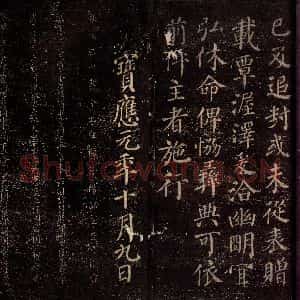 已及追封或未從表贈
載覃渥澤足洽幽明宜
弘休命俾協彝典可依
前件主者施行
寶應元年十月九日
Shufawang.CN